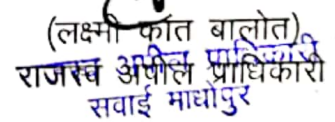 (लक्ष्मी कांत बालोत)
राजस्व अपील प्राधिकारी
सवाई माधोपुर